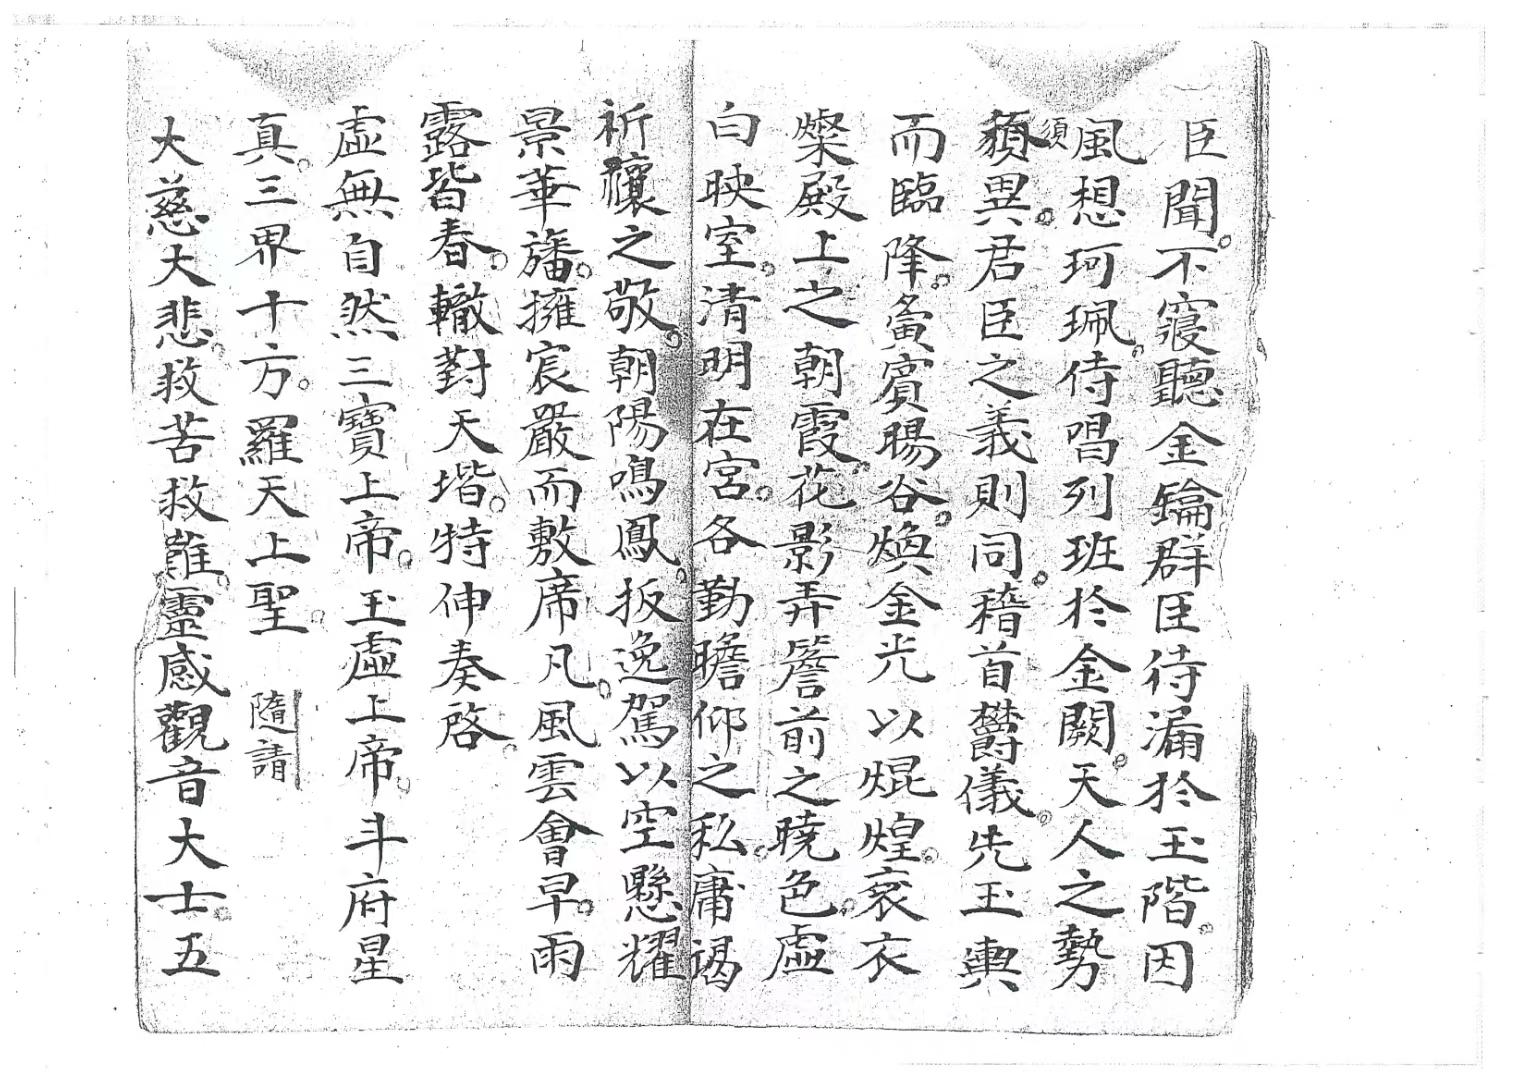 臣聞。不寢聽金鑰群臣待漏於玉階。因
風想珂珮。侍唱列班於金闕。天人之勢
須
頯異。君臣之義則同。稽首欝儀。先玉輿
而臨降。夤賓暘谷。煥金光以焜煌。袞衣
燦殿上之朝霞。花影弄簷前之曉色。虛
白映室。清明在宮。各勤瞻仰之私。庸竭
祈禳之敬。朝陽鳴鳳。扳逸駕以空懸。耀
景華旛。擁宸嚴而敷席。凡風雲會早。雨
露皆春。轍對天堦。特伸奏啓。
虛無自然三寶上帝。玉虛上帝。斗府星
真。三界十方。羅天上聖。 隨請
大慈大悲。救苦救難。靈感觀音大士。五